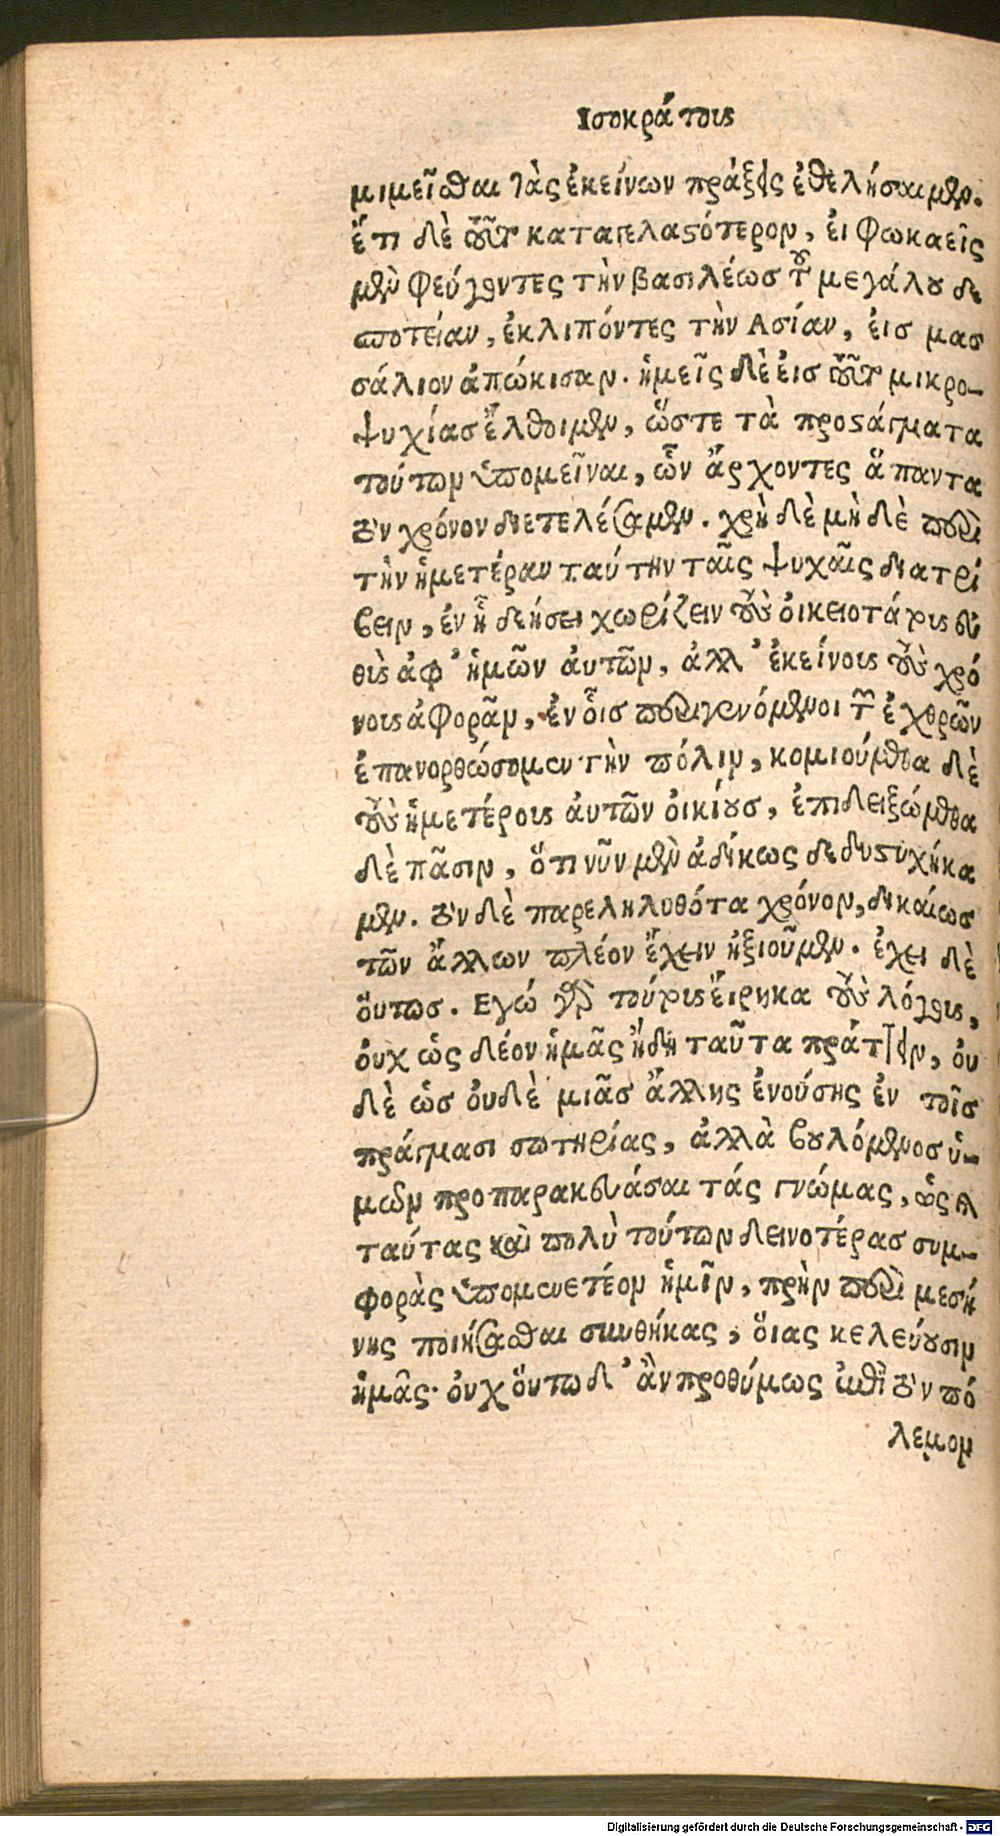 Ισοκράτους
μιμεῖσθαι τὰς ἐκείνων πράξεις ἐθελήσαιμεν.
ἔτι δὲ τοῦτο καταγελαστότερον, ἐι Φωκαεῖς
μὲν φεύγοντες τὴν βασιλέως τοῦ μεγάλου δε
σποτείαν, ἐκλιπόντες τὴν Ασίαν, ἐις μασ
σάλιον ἀπώκισαν. ἡμεῖς δὲ ἐις τοῦτο μικρο-
ψυχίας ἔλθοιμεν, ὥστε τὰ προστάγματα
τούτων ὑπομεῖναι, ὧν ἄρχοντες ἅπαντα
τὸν χρόνον διετελέσαμεν. χρὴ δὲ μὴ δὲ περὶ
τὴν ἡμετέραν ταύτην ταῖς ψυχαῖς διατρί
βειν, ἐν ᾗ δεήσει χωρίζειν τοὺς ὀικειοτάτους
ἀφ' ἡμῶν ἀυτῶν, ἀλλ' ἐκείνους τοὺς χρό
νους ἀφορᾶν, ἐν ὧις περιγενόμενοι τῶν ἐχθρῶν
ἐπανορθώσομεν τὴν πόλιν, κομιούμεθα δὲ
τοὺς ἡμετέρους ἀυτῶν ὀικίους, ἐπιδειξώμεθα
δὲ πᾶσιν, ὅτι νῦν μὲν ἀδίκως δεδυστυχήκα
μεν. τὸν δὲ παρεληλυθότα χρόνον, δικαίως
τῶν ἄλλων πλέον ἔχειν ἠξιοῦμεν. ἐχει δὲ
ὅυτως. Εγώ γὰρ τούτους ἔιρηκα τοὺς λόγους,
ὀυχ ὡς δέον ἡμᾶς ἤδη ταῦτα πράττειν, ὀυ
δὲ ὡς ὀυδὲ μιᾶς ἄλλης ἐνούσης ἐν τοῖς
πράγμασι σωτηρίας, ἀλλὰ βουλόμενος ὑ-
μῶν προπαρακευάσαι τάς γνώμας, ὡς
ταύτας καὶ πολὺ τούτων δεινοτέρας συμ-
φορὰς ὑπομενετέον ἡμῖν, πρὶν περὶ μεσή
νης ποιήσασθαι συνθήκας, ὅιας κελεύουσιν
ἡμᾶς. ὀυχ ὅυτω δ' ἂν προθύμως ἐπὶ τὸν πό
λεμον